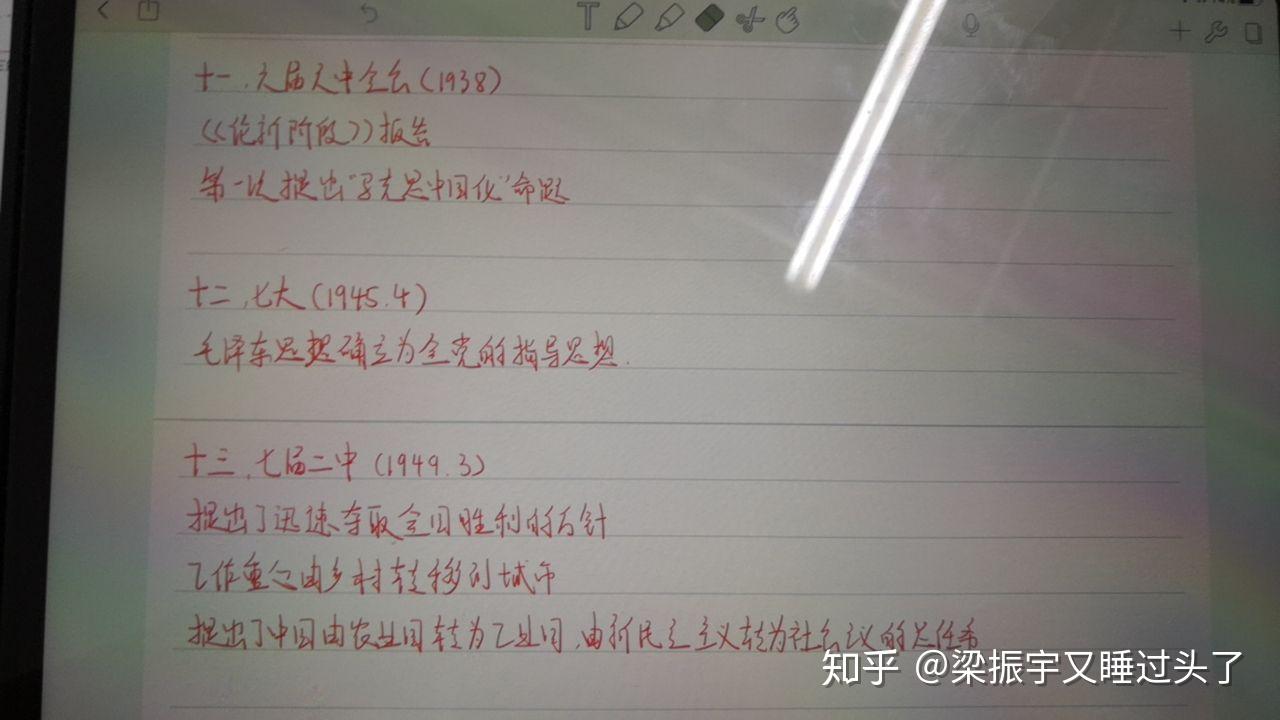 十一、六届六中全会(1938)
《论新阶段》报告
第一次提出“马克思中国化”命题
十二、七大(1945.4)
毛泽东思想确立为全党的指导思想.
十三、七届二中(1949.3)
提出了迅速夺取全国胜利的方针
工作重心由乡村转移到城市
提出了中国由农业国转为工业国,由新民主主义转为社会议的总任务
知乎 @梁振宇又睡过头了